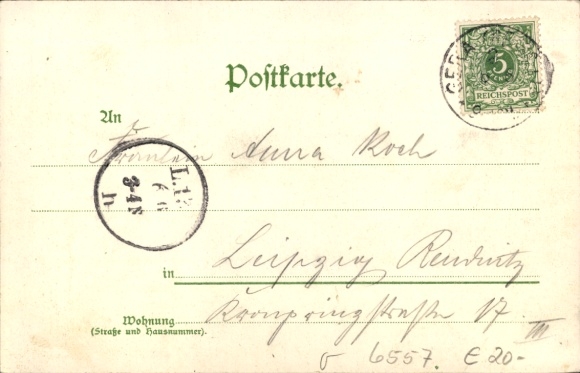 Postkarte.
5
REICHSPOST
GERA
An
Fräulein Anna Koch
L.R.
3-4N
h
in Leipzig Reudnitz
Wohnung
(Straße und Hausnummer).
Kronprinzstraße 17
III
6557. € 20-